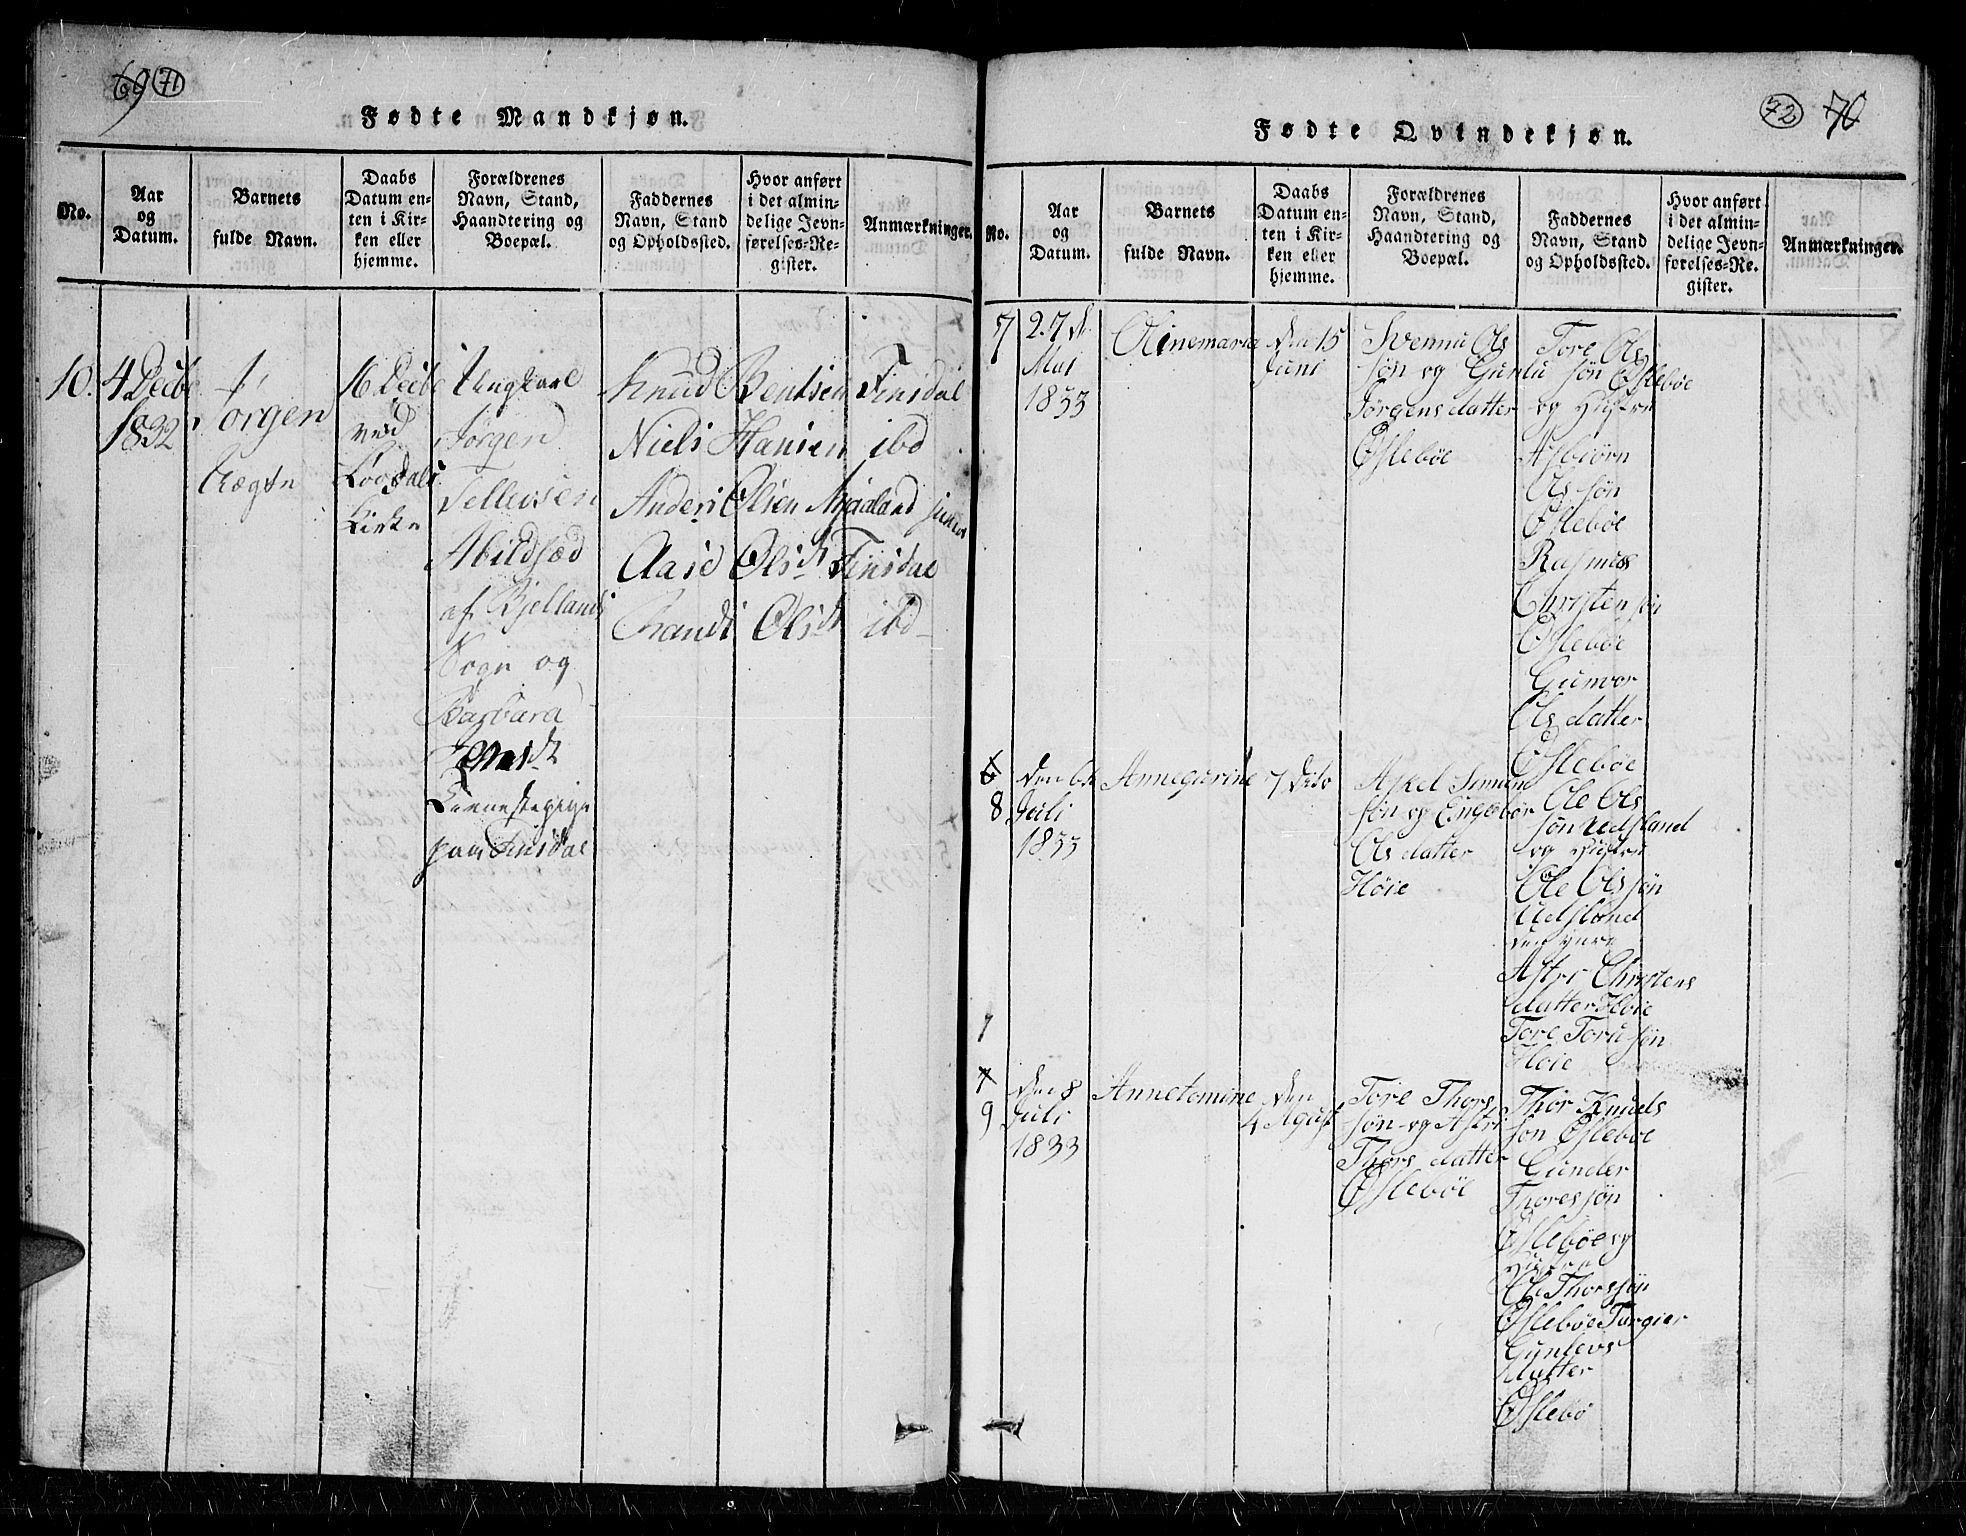 69 71
Fødte Mandkjøn.
No.
Aar
og
Datum.
Barnets
fulde Navn.
Daabs
Datum en-
ten i Kir-
ken eller
hjemme.
Forældrenes
Navn, Stand,
Haandtering og
Boepæl.
Faddernes
Navn, Stand
og Opholdssted.
Hvor anført
i det almin-
delige Jevn-
førelses-Re-
gister.
Anmærkninger.
10.
4 Decbr
1832
Jørgen
Uægte
16 Decbr
ved
Lougdals
Kirke
Ungkarl
Jørgen
Tellevsen
Abildsæd
af Bjellands
Sogn og
Barbara
paa Finsdal
Knud Bentsen Finsdal
Niels Hansen ibd
Anders Olsen Mjaaland
Aase Olsdt Finsdal
Olsdt ibd
72 70
Fødte Qvindekjøn.
No.
Aar
og
Datum.
Barnets
fulde Navn.
Daabs
Datum en-
ten i Kir-
ken eller
hjemme.
Forældrenes
Navn, Stand,
Haandtering og
Boepæl.
Faddernes
Navn, Stand
og Opholdssted.
Hvor anført
i det almin-
delige Jevn-
førelses-Re-
gister.
Anmærkninger.
7
27 d.
Mai
1833
Olinemaria
den 15
Juni
Svennu Ols
søn og Gunlu
Jørgensdatter
Øslebøe
Tore Ols
søn Øslebøe
og Hustru
Asbiørn
Ols søn
Øslebøe
Rasmus
Christensøn
Øslebøe
Gunvor
Olsdatter
Øslebøe
6
8
den 6te
Juli
1833
Annegurine
7 dito
Askel
søn og Engebor
Olsdatter
Høie
Ole Ols
søn Udsland
og Hustru
Ole Olssøn
Udsland
den yure
Astri Christens
datter Høie
Tore Torussøn
Høie
7
7
9
den 8
Juli
1833
Annetomine
den
4 Agust
Tore Thors
søn og Astri
Thorsdatter
Øslebøe
Thor Knuds
søn Øslebøe
Gunder
Thoressøn
Øslebøe og
Hustru
Ole Thorssøn
Øslebøe Torgier
Gunlevs
datter
Øslebø